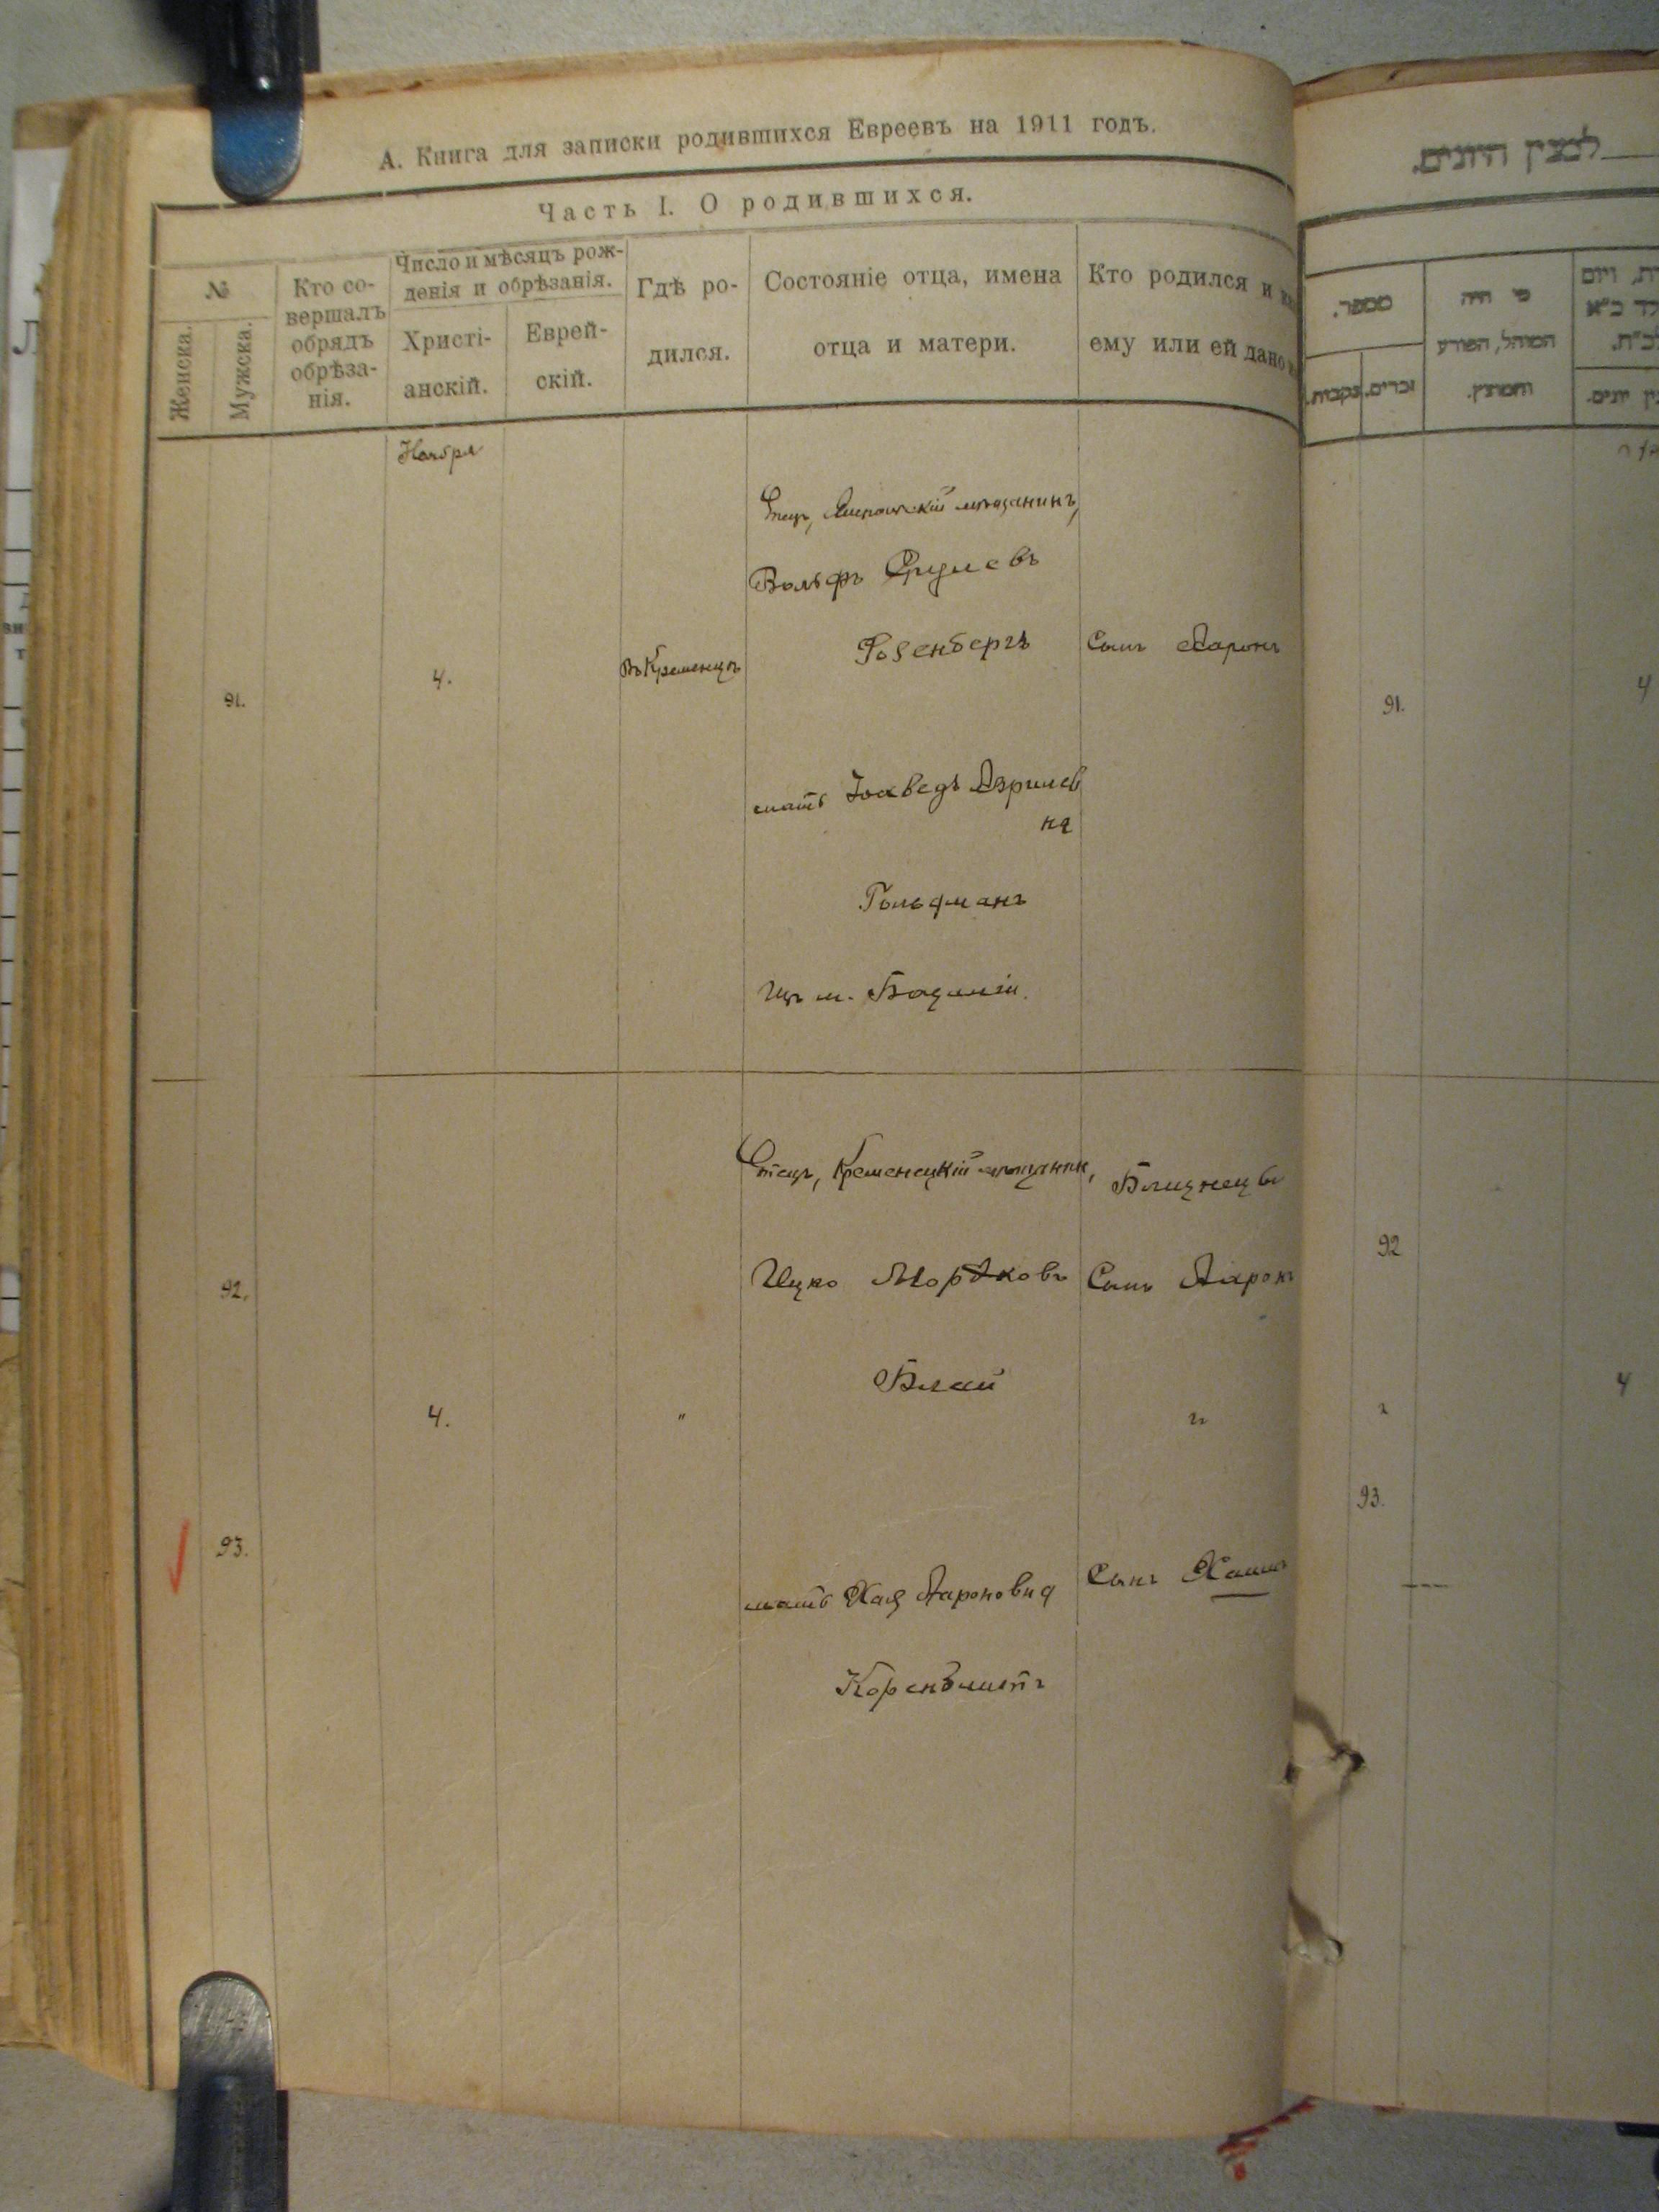 А. Книга для записки родившихся Евреевъ на 1911 годъ.
Часть I. О родившихся.
№
Женска.
Мужска.
Кто со-
вершалъ
обрядъ
обрѣза-
нія.
Число и мѣсяцъ рож-
денія и обрѣзанія.
Христі-
анскій.
Еврей-
скій.
Гдѣ ро-
дился.
Состояніе отца, имена
отца и матери.
Кто родился и
ему или ей дано
Ноября
91.
4.
Въ Кременцѣ
Отецъ, мѣщанинъ,
Вольфъ
Розенбергъ
мать Іохведъ Азрилев
на
Гольдманъ
изъ м.
Сынъ Ааронъ
92.
93.
4.
"
Отецъ, Кременецкій мѣщанин,
Ицко Мордковъ
Блай
мать Хая Ароновна
Коренблитъ
Близнецы
Сынъ Ааронъ
"
Сынъ Хаимъ
למנין היונים.
מספר.
נקבות.
זכרים.
מי היה
המוהל, הפורע
והמוצץ.
91.
4
92
4
93.